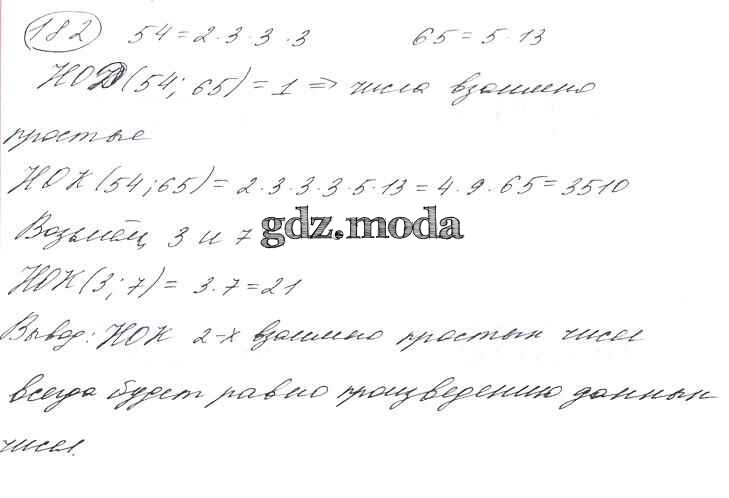 182 54 = 2·3·3·3 65 = 5·13
НОД(54; 65) = 1 ⇒ числа взаимно
простые
НОК(54; 65) = 2·3·3·3·5·13 = 4·9·65 = 3510
Возьмём 3 и 7
gdz.moda
НОК(3; 7) = 3·7 = 21
Вывод: НОК 2-х взаимно простых чисел
всегда будет равно произведению данных
чисел.